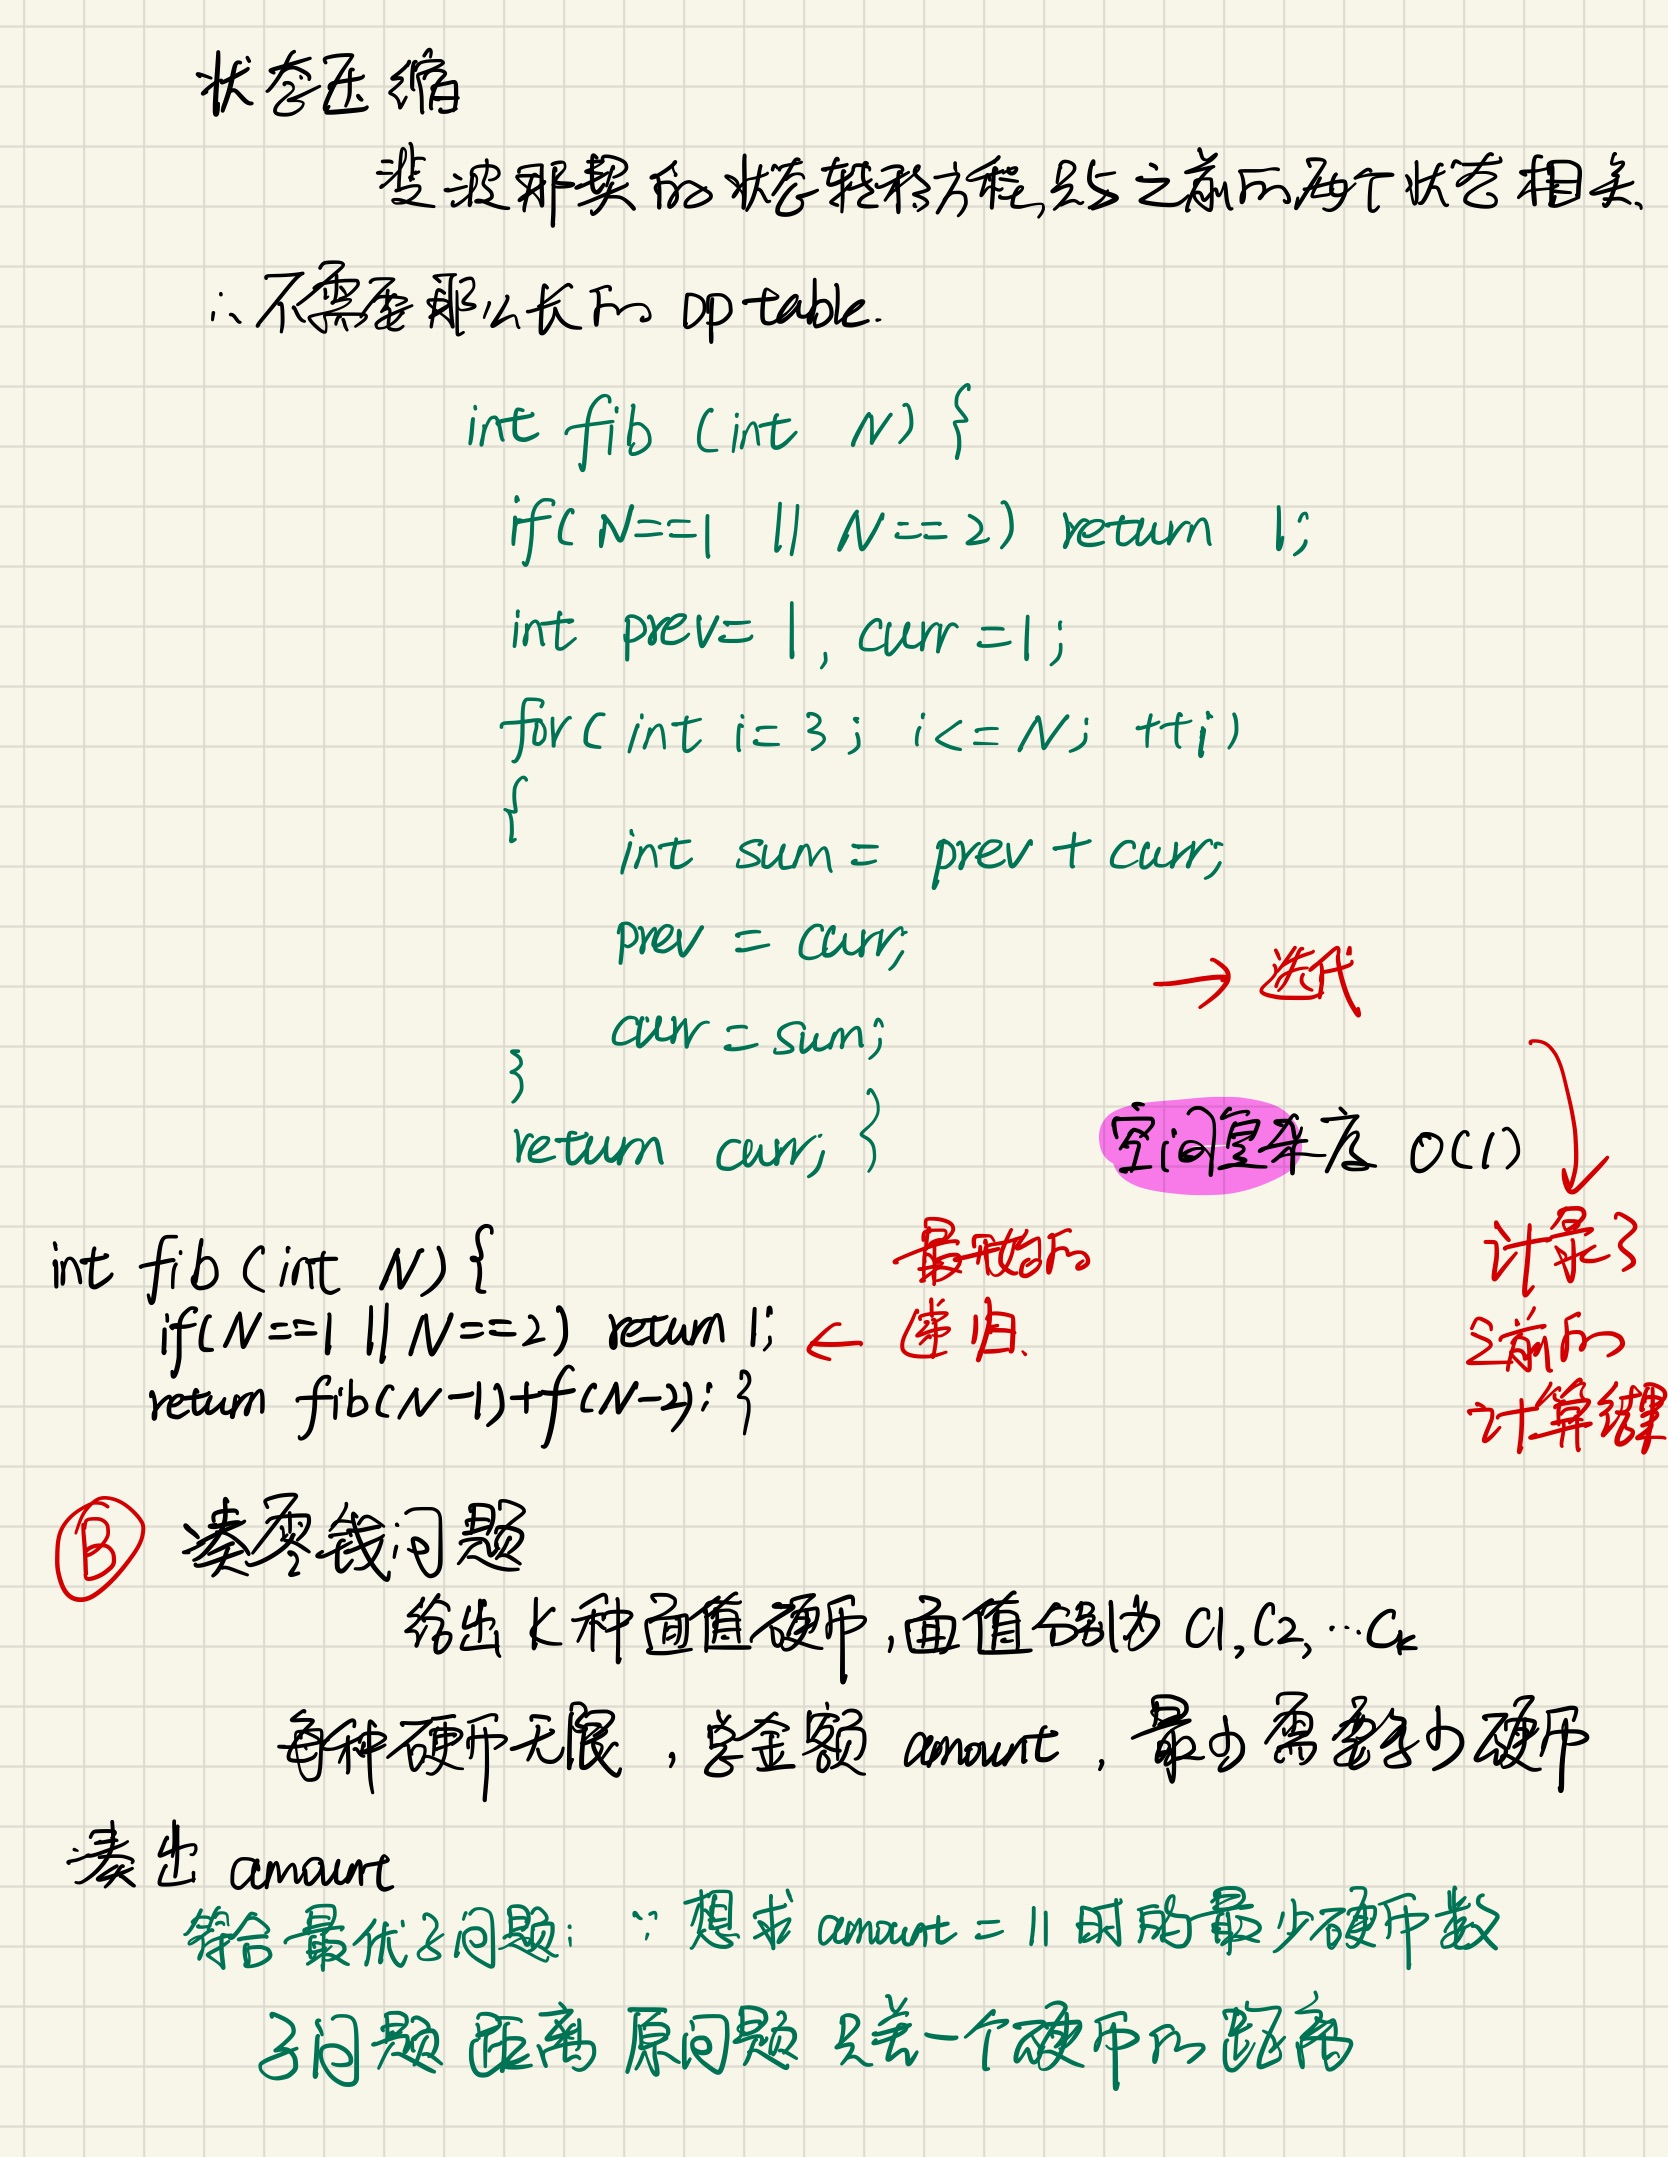 状态压缩
斐波那契的状态转移方程,只与之前的两个状态相关、
∴不需要那么长的 DP table.
int fib (int N) {
if( N==1 || N==2) return 1;
int prev=1, curr=1;
for( int i=3; i<=N; ++i)
{
int sum = prev + curr;
prev = curr;
→ 迭代
curr = sum;
}
return curr; }
空间复杂度 O(1)
int fib (int N) {
if(N==1 || N==2) return 1;
return fib(N-1)+f(N-2); }
最开始的
← 递归.
计录了
之前的
计算结果
Ⓑ 凑零钱问题
给出 k 种面值硬币,面值分别为 C1, C2, …Ck
每种硬币无限,总金额 amount,最少需要多少硬币
凑出 amount
符合最优子问题: ∵想求 amount = 11 时的最少硬币数
子问题 距离 原问题 只差一个硬币的 距离